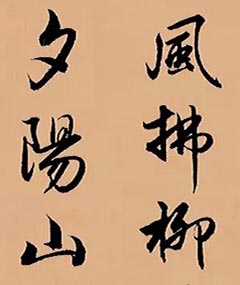 風拂柳
夕陽山